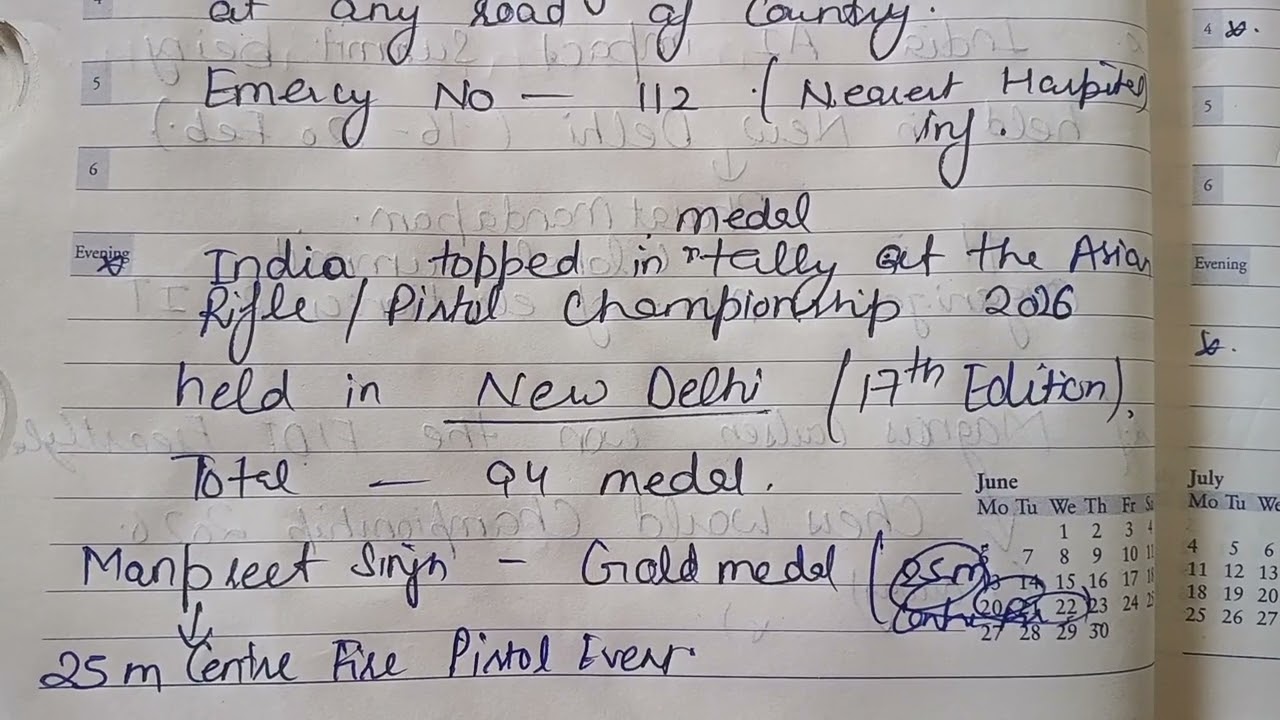 at any road of Country.
4
5 Emercy No — 112 (Nearest Hospital
inf.
6
medal
Evening India topped in tally at the Asian
Rifle / Pistol Championship 2026
held in New Delhi (17th Edition),
Total — 94 medal.
Manpreet Singh - Gold medal (25m
Centre
25 m Centre Fire Pistol Event
June
Mo Tu We Th Fr Sa
1 2 3 4
6 7 8 9 10 11
13 14 15 16 17 18
20 22 23 24 25
27 28 29 30
4
5
6
Evening
July
Mo Tu We
4 5 6
11 12 13
18 19 20
25 26 27